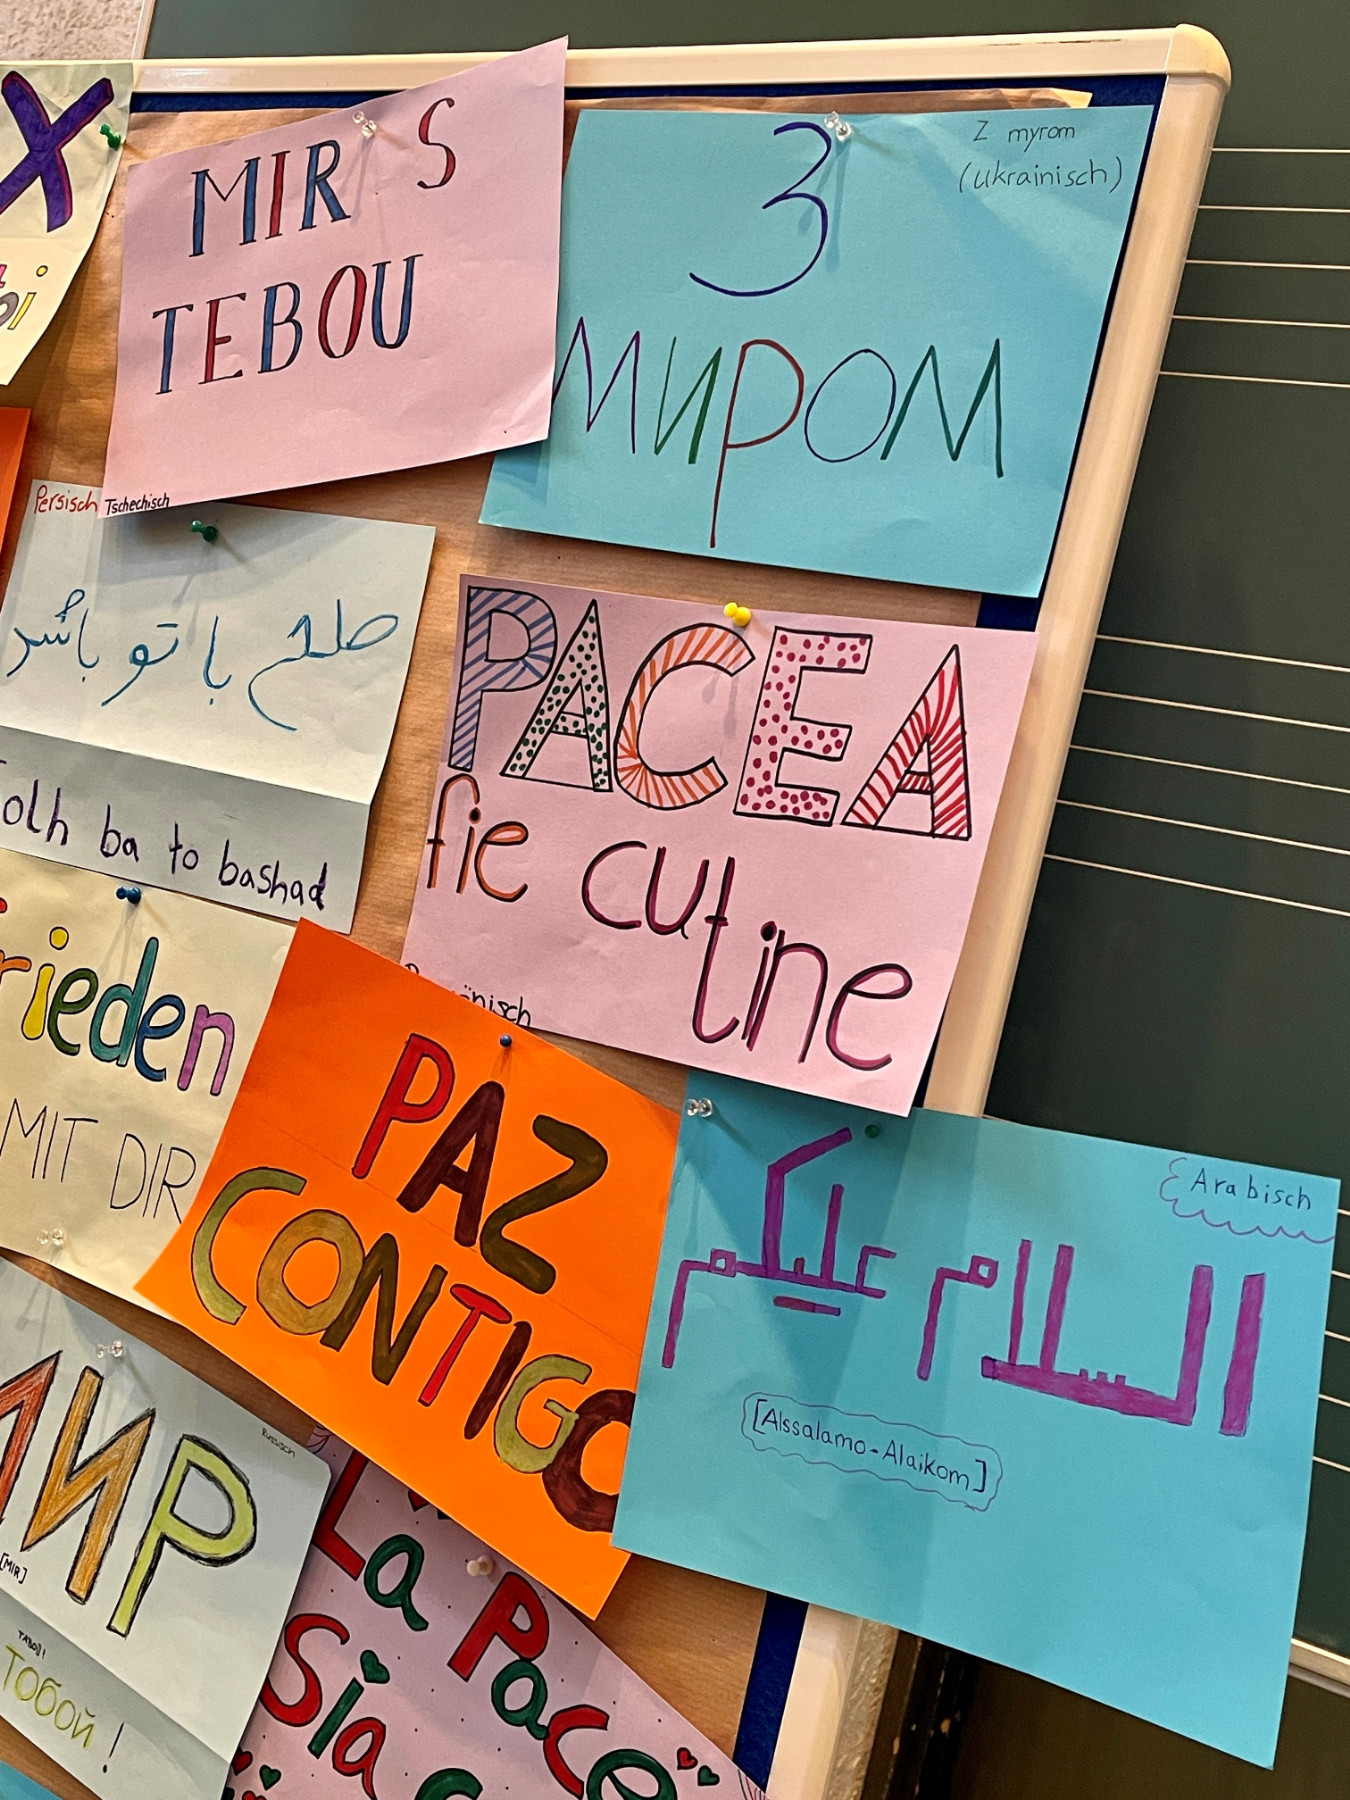 X
MIR S
TEBOU
Tschechisch
З
мирOM
Z myrom
(ukrainisch)
Persisch
صلح با تو باشد
solh ba to bashad
PACEA
fie cu
tine
Frieden
MIT DIR
PAZ
CONTIGO
Arabisch
السلام عليكم
[Alssalamo-Alaikom]
МИР
Russisch
[MIR]
ТАБОЙ!
Тобой!
La Pace
Sia